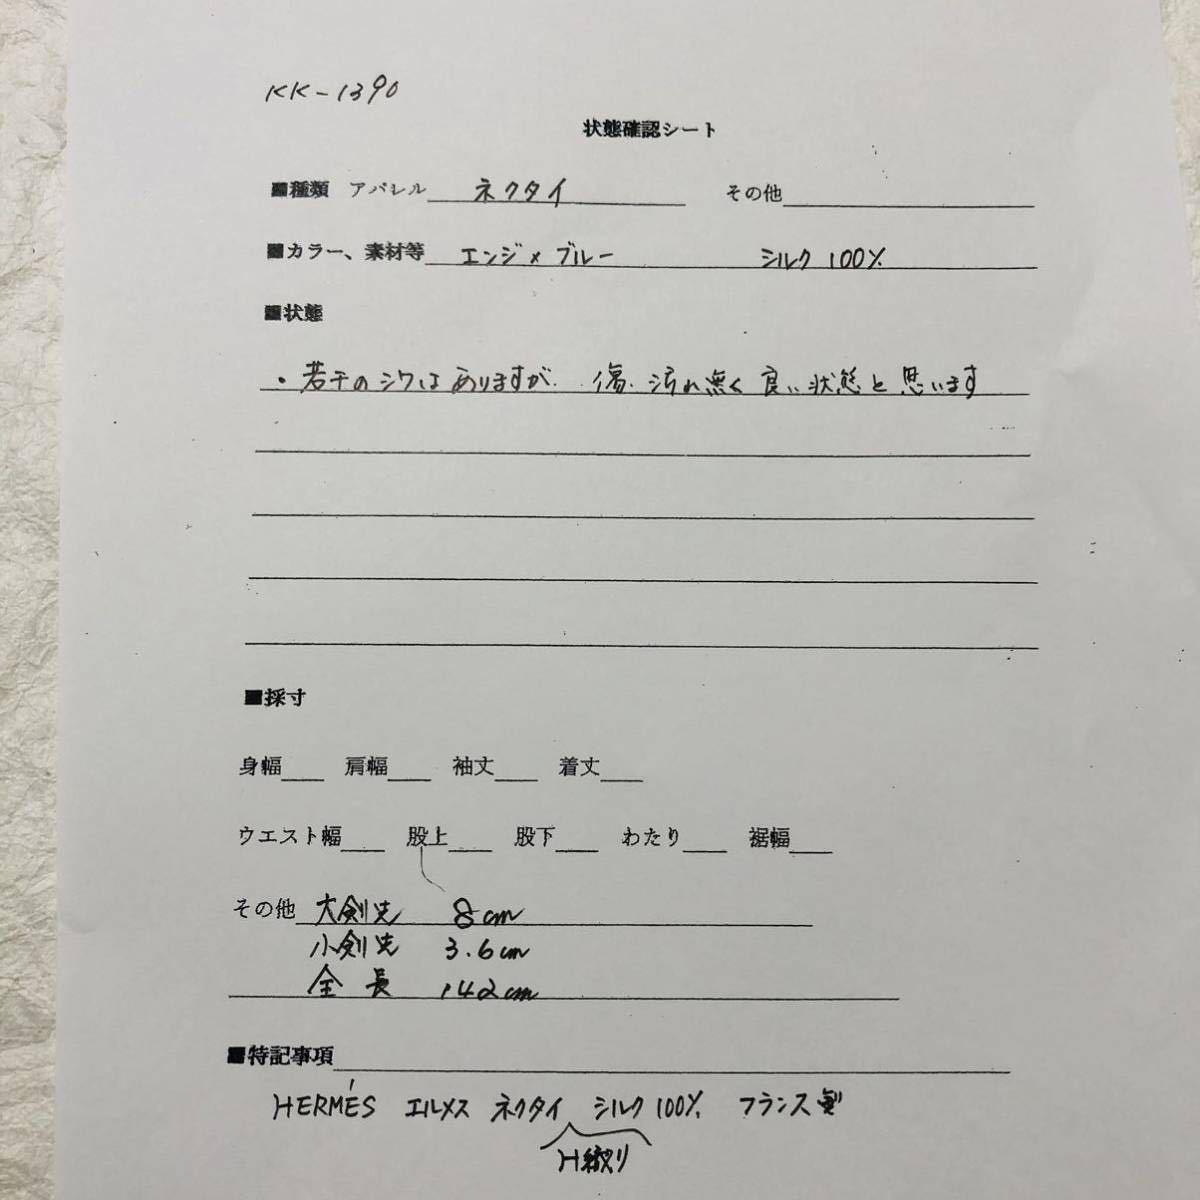 KK-1390
状態確認シート
■種類 アパレル ネクタイ その他
■カラー、素材等 エンジ×ブルー シルク 100%
■状態
・若干のシワはありますが、傷、汚れ無く良い状態と思います
■採寸
身幅 肩幅 袖丈 着丈
ウエスト幅 股上 股下 わたり 裾幅
その他 大剣先 8cm
小剣先 3.6cm
全長 142cm
■特記事項
HERMÉS エルメス ネクタイ シルク 100% フランス製
H織り